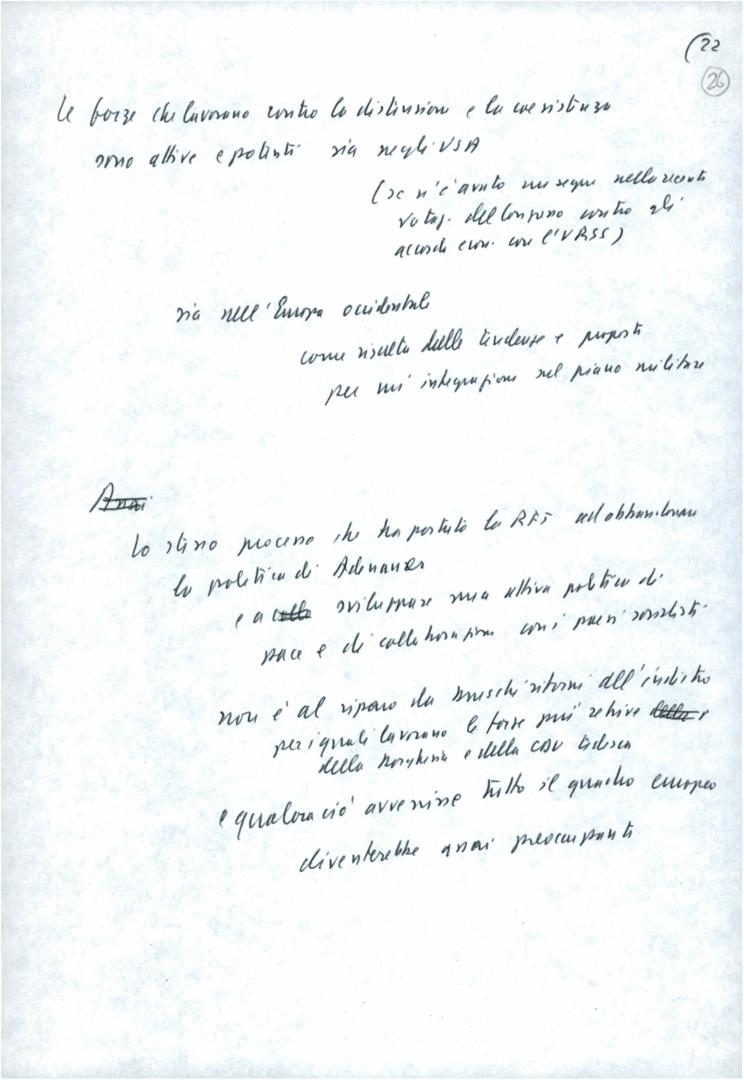 (22
26
Le forze che lavorano contro la distensione e la coesistenza
sono attive e potenti sia negli USA
(se n'è avuto un segno nella recente
votaz. del Congresso contro gli
accordi econ. con l'URSS)
sia nell'Europa occidentale
come risulta dalle tendenze e proposte
per un'integrazione sul piano militare
Assai
Lo stesso processo che ha portato la RFT ad abbandonare
la politica di Adenauer
e a sviluppare una attiva politica di
pace e di collaborazione con i paesi socialisti
non è al riparo da bruschi ritorni all'indietro
per i quali lavorano le forze più retrive
della borghesia e della CDU tedesca
e qualora ciò avvenisse tutto il quadro europeo
diventerebbe assai preoccupante